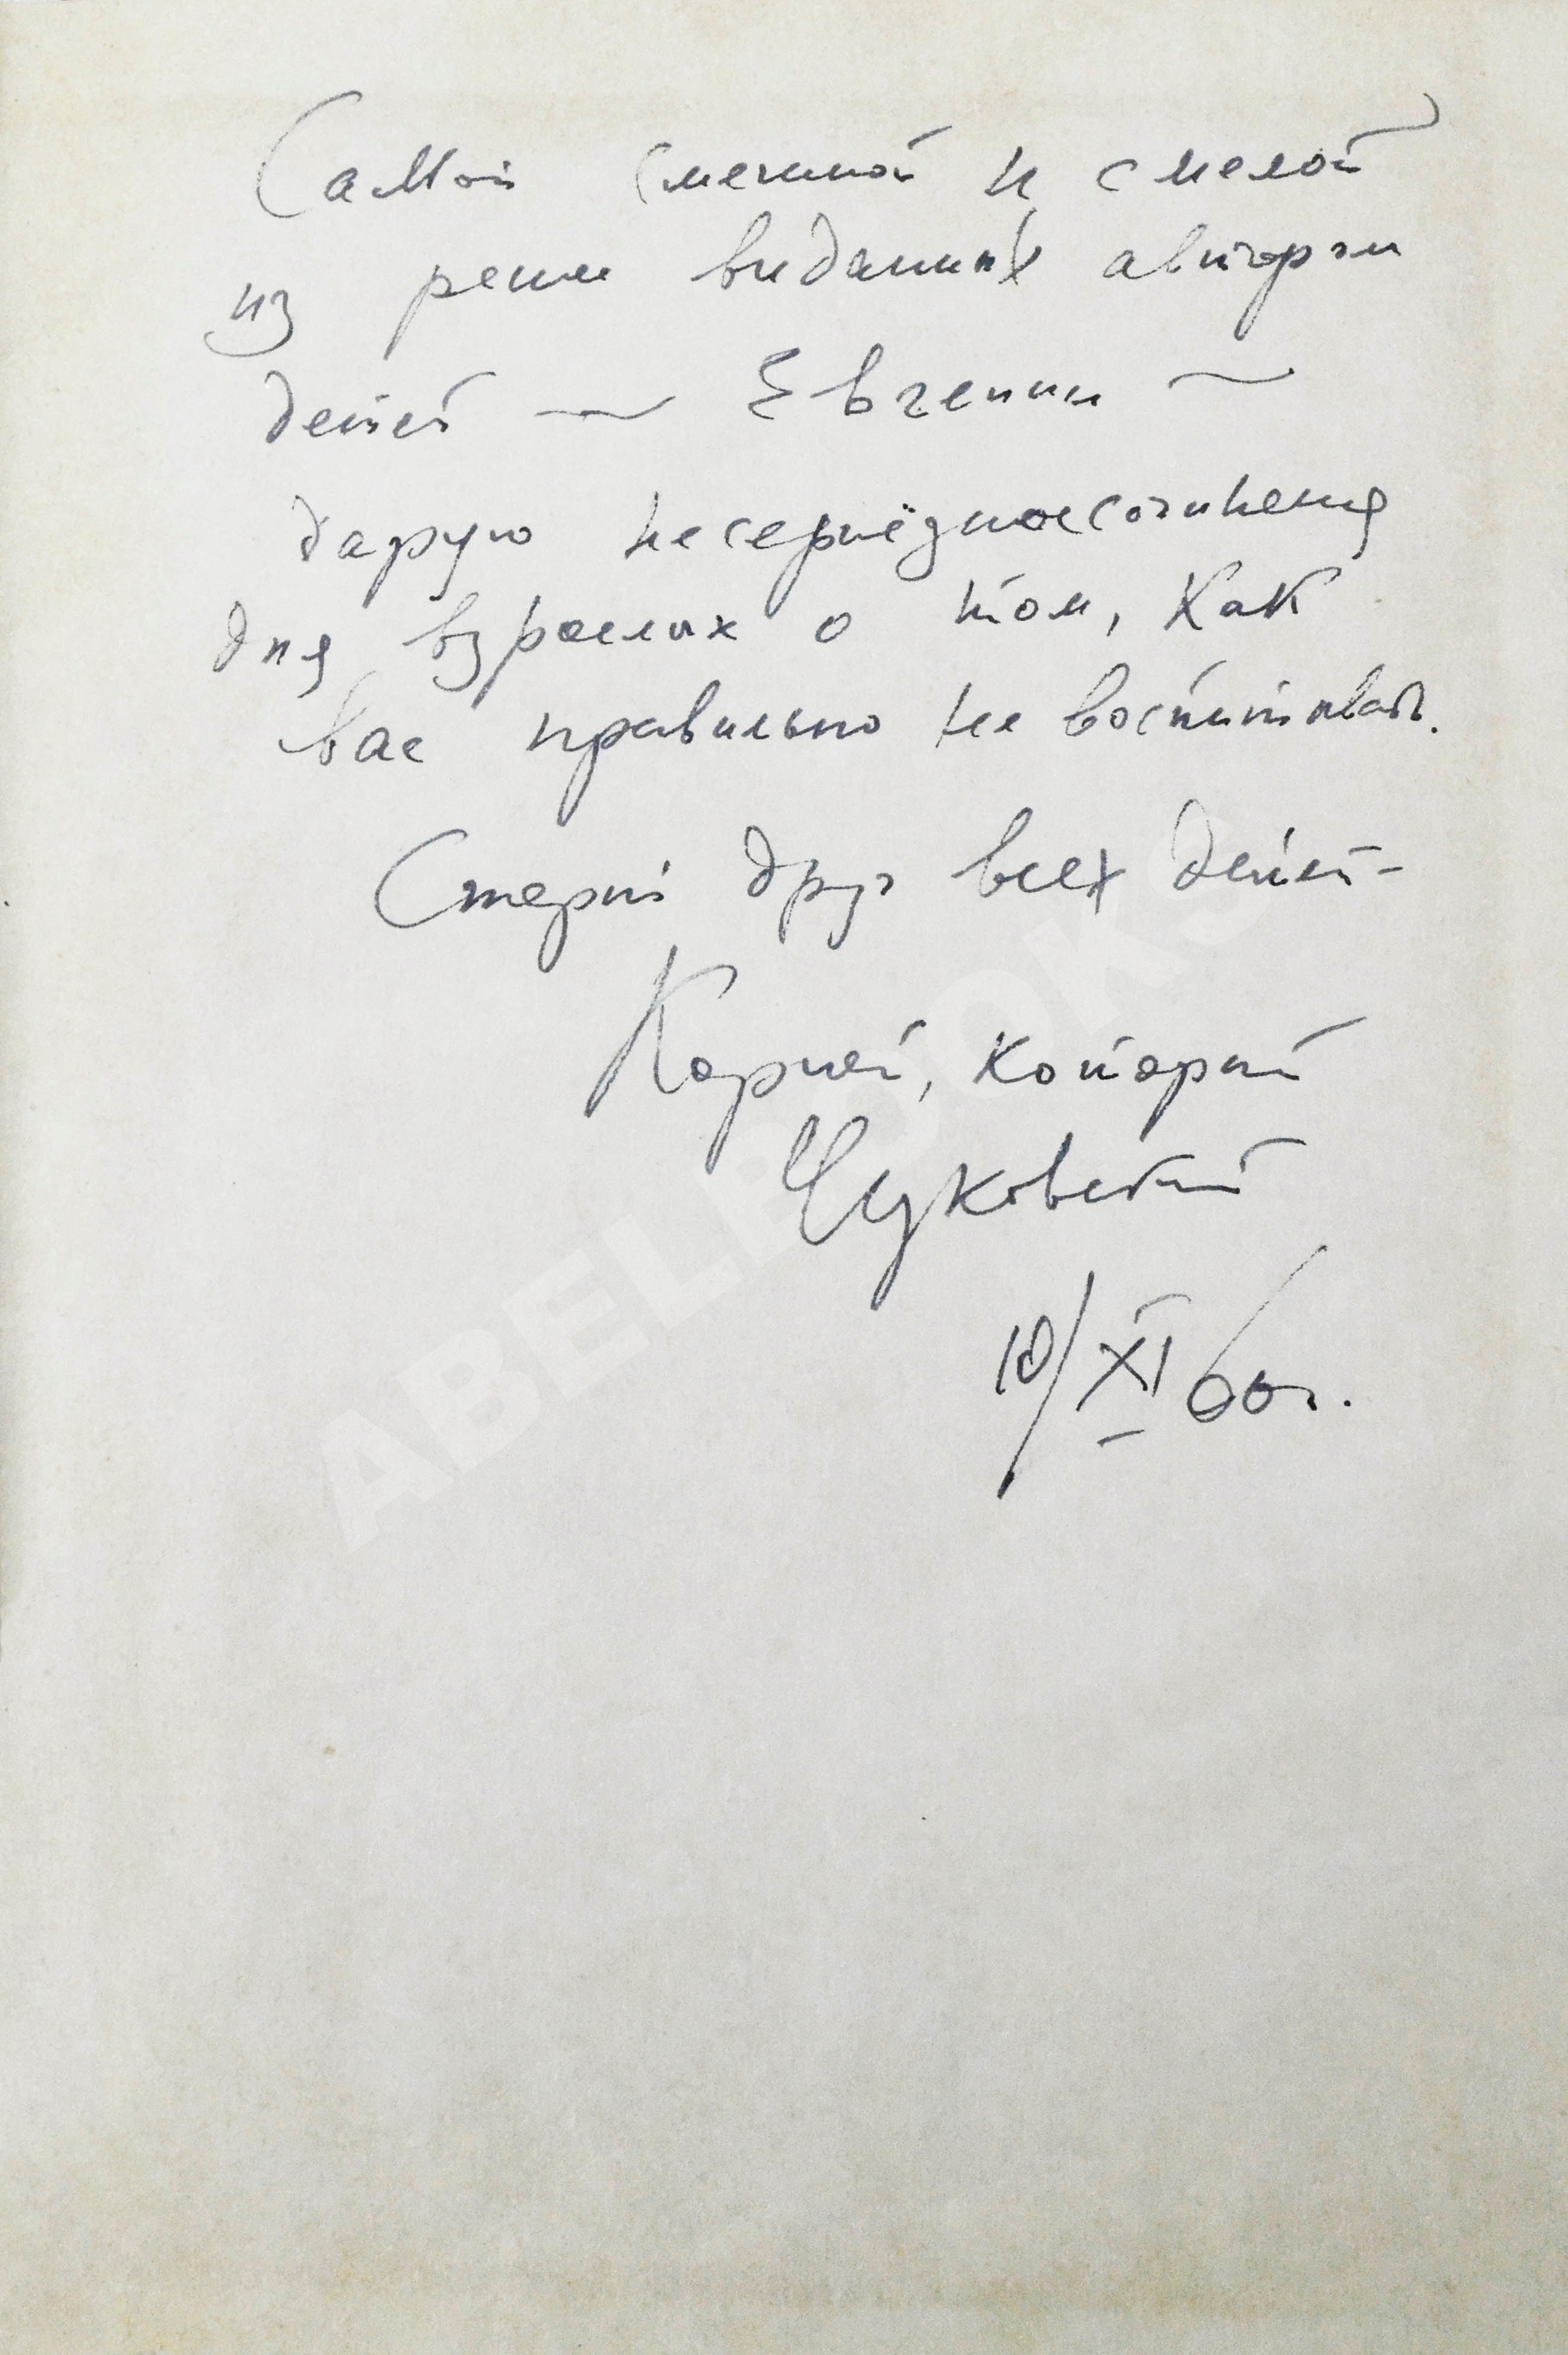 Самой смешной и смелой
из виданных автором
детей — Евгении —
дарую несерьёзное сочинение
для взрослых о том, как
вас правильно не воспитывать.
Старый друг всех детей -
Корней, который
Чуковский
10/XI 60г.
ABELBOOKS